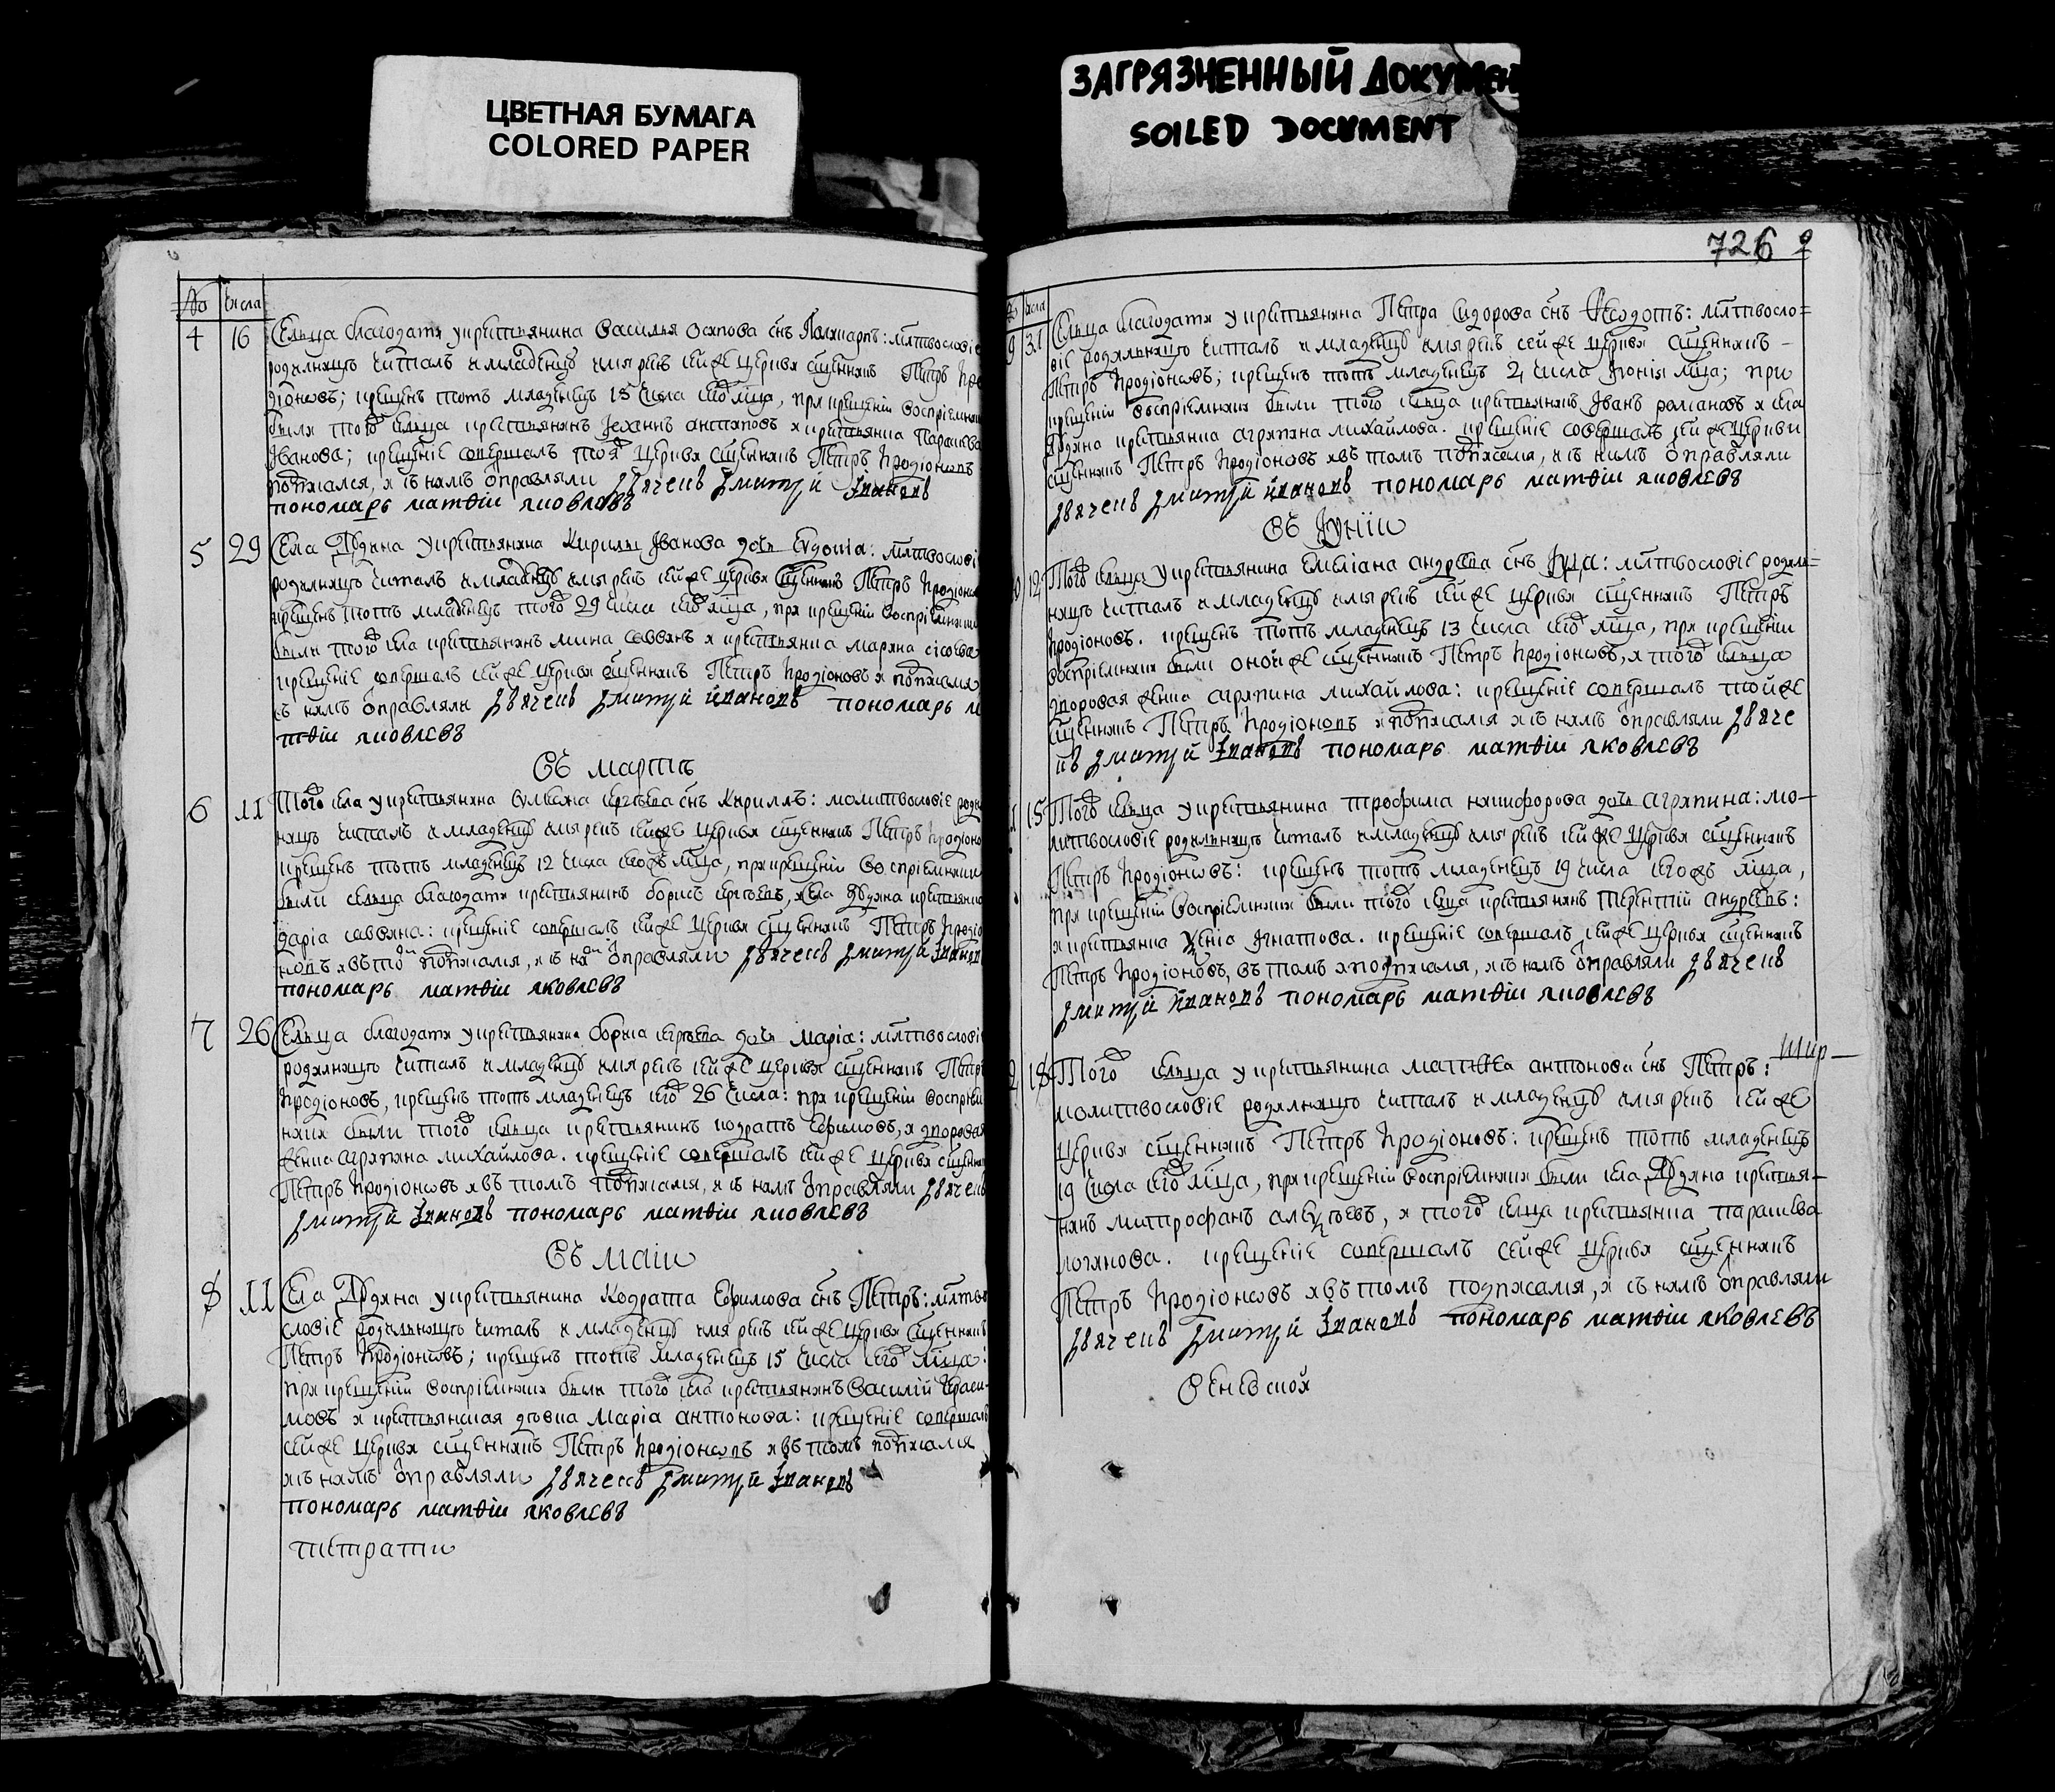 ЦВЕТНАЯ БУМАГА
COLORED PAPER
ЗАГРЯЗНЕННЫЙ ДОКУМЕН
SOILED DOCUMENT
726
№ числа
4 16 Сельца благодати у крестьянина Василья Осипова снъ Поликарпъ: млтвословіе
родилницѣ читалъ и младенцу имя рекъ сей же церкви сщенникъ Петръ Про
діоновъ; крещенъ тотъ младенецъ 18 числа сегѡ мца, при крещеніи воспріемники
были тогѡ сельца крестьянинъ Іоаннъ антиповъ и крестьянка Параскева
Іванова; крещеніе совершалъ тоя церкви сщенникъ Петръ Продіоновъ
подписался, и съ нимъ ѡправляли дьячекъ Дмитрй Івановъ
пономарь матѳіи яковлевъ
5 29 Села Ядрина у крестьянина Кирилы Іванова дочь Евдокіа: млтвословіе
родилницѣ читалъ и младенцу имя рекъ сей же церкви сщенникъ Петръ Продіоновъ
крещенъ тотъ младенецъ тогѡ 29 числа сегѡ мца, при крещеніи воспріемники
были тогѡ села крестьянинъ мина саввинъ и крестьянка марина сісоева
крещеніе совершалъ сей же церкви сщенникъ Петръ Продіоновъ и подписался
съ нимъ ѡправляли дьячекъ Дмитрй Івановъ пономарь м
тѳіи яковлевъ
Въ мартѣ
6 11 Тогѡ села у крестьянина сергѣева снъ Кириллъ: молитвословіе роди
ницѣ читалъ и младенцу имя рекъ сей же церкви сщенникъ Петръ Продіоно
крещенъ тотъ младенецъ 12 числа сегожъ мца, при крещеніи воспріемники
были сельца благодати крестьянинъ борисъ сергѣевъ, и села Ядрина крестьянка
даріа саввина: крещеніе совершалъ сей же церкви сщенникъ Петръ Продіо
новъ и въ томъ подписался, и съ нимъ ѡправляли дьячекъ Дмитрй Іванов
пономарь матѳіи яковлевъ
7 26 Сельца благодати у крестьянина бориса сергѣева дочь Маріа: млтвословіе
родилницѣ читалъ и младенцу имя рекъ сей же церкви сщенникъ Петръ
Продіоновъ, крещенъ тотъ младенецъ сегѡ 26 числа: при крещеніи воспріем
ники были тогѡ сельца крестьянинъ кодратъ Ефимовъ, и дворовая
женка агрипина михайлова. крещеніе совершалъ сей же церкви сщенник
Петръ Продіоновъ и въ томъ подписался, и съ нимъ ѡправляли дьячекъ
Дмитрй Івановъ пономарь матѳіи яковлевъ
Въ маіи
8 11 Села Ядрина у крестьянина Кодрата Ефимова снъ Петръ: млтво
словіе родильницѣ читалъ и младенцу имя рекъ сей же церкви сщенникъ
Петръ Продіоновъ; крещенъ тотъ младенецъ 15 числа сегѡ мца:
при крещеніи воспріемники были тогѡ села крестьянинъ Василій Гераси-
мовъ и крестьянская дѣвка Маріа антонова: крещеніе совершалъ
сей же церкви сщенникъ Петръ Продіоновъ и въ томъ подписался
и съ нимъ ѡправляли дьячекъ Дмитрй Івановъ
пономарь матѳіи яковлевъ
числа
9 31 Сельца благодати у крестьянина Петра Сидорова снъ Ѳеодотъ: млтвосло=
віе родильницѣ читалъ и младенцу имя рекъ сей же церкви сщенникъ -
Петръ Продіоновъ; крещенъ тотъ младенецъ 2 числа Іюнія мца; при
крещеніи воспріемники были тогѡ сельца крестьянинъ Іванъ романовъ и села
Ядрина крестьянка агрипина михайлова. крещеніе совершалъ сей же церкви
сщенникъ Петръ Продіоновъ и въ томъ подписался, и съ нимъ ѡправляли
дьячекъ Дмитрй Івановъ пономарь матѳіи яковлевъ
Въ Іуніи
12 Тогѡ сельца у крестьянина Емеліана андреева снъ Іуда: млтвословіе родил=
ницѣ читалъ и младенцу имя рекъ сей же церкви сщенникъ Петръ
Продіоновъ. крещенъ тотъ младенецъ 13 числа сегѡ мца, при крещеніи
воспріемники были оной же сщенникъ Петръ Продіоновъ, и тогѡ сельца
дворовая женка агрипина михайлова: крещеніе совершалъ той же
сщенникъ Петръ Продіоновъ и подписался и съ нимъ ѡправляли дьяче
къ Дмитрй Івановъ пономарь матѳіи яковлевъ
15 Тогѡ сельца у крестьянина трофима никифорова дочь агрипина: мо-
литвословіе родильницѣ читалъ и младенцу имя рекъ сей же церкви сщенникъ
Петръ Продіоновъ: крещенъ тотъ младенецъ 19 числа сегожъ мца,
при крещеніи воспріемники были тогѡ сельца крестьянинъ Терентій андреевъ:
и крестьянка Ѯеніа Ігнатова. крещеніе совершалъ сей же церкви сщенникъ
Петръ Продіоновъ, въ томъ и подписался, и съ нимъ ѡправляли дьячекъ
Дмитрй Івановъ пономарь матѳіи яковлевъ
18 Тогѡ сельца у крестьянина матѳеа антонова снъ Петръ:
молитвословіе родилницѣ читалъ и младенцу имя рекъ сей же
церкви сщенникъ Петръ Продіоновъ: крещенъ тотъ младенецъ
19 числа сегѡ мца, при крещеніи воспріемники были села Ядрина крестья-
нинъ митрофанъ алеѯѣевъ, и тогѡ сельца крестьянка параскева
логинова. крещеніе совершалъ сей же церкви сщенникъ
Петръ Продіоновъ и въ томъ подписался, и съ нимъ ѡправляли
дьячекъ Дмитрй Івановъ пономарь матѳіи яковлевъ